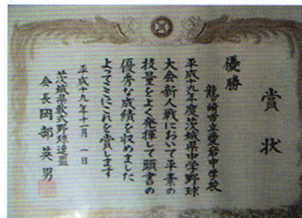 賞状
優勝
龍ヶ崎市立愛宕中学校
平成十九年度茨城県中学野球
大会新人戦において平素の
技量をよく発揮して頭書の
優秀な成績を収めました
よってここにこれを賞します
平成十九年十一月一日
茨城県軟式野球連盟
会長 岡部英男